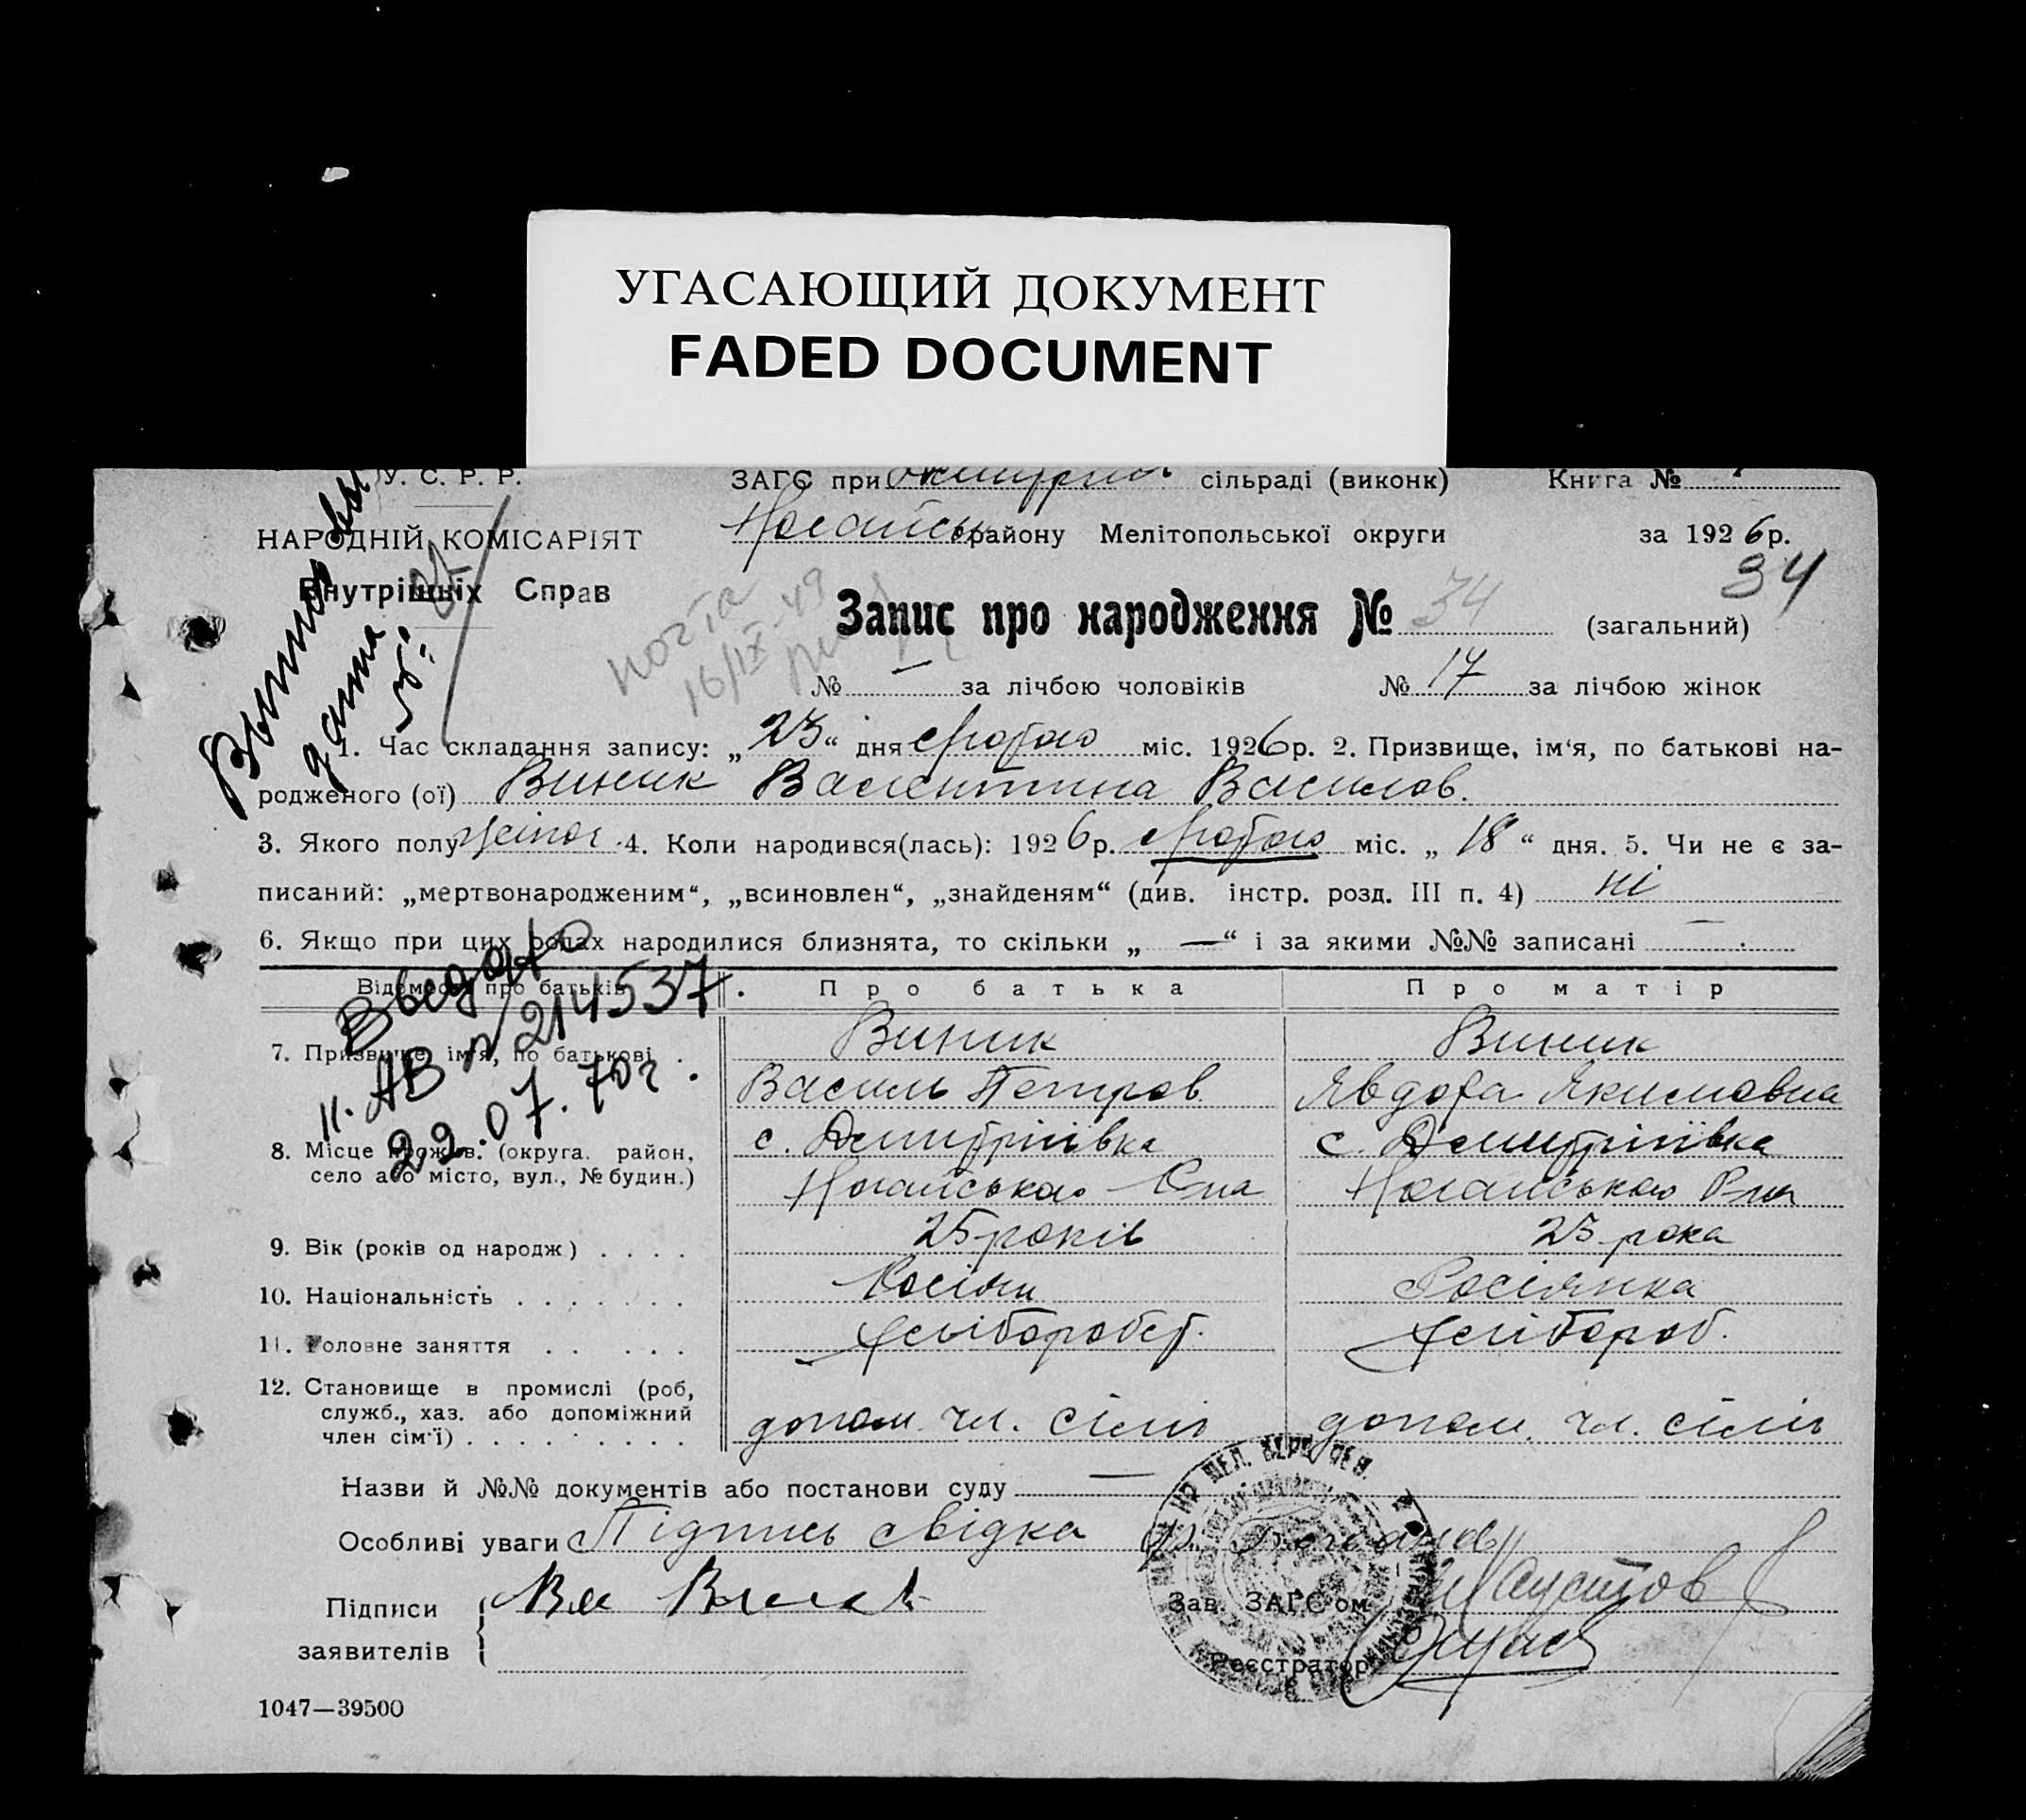 УГАСАЮЩИЙ ДОКУМЕНТ
FADED DOCUMENT
У. С. Р. Р.
ЗАГС при сільраді (виконк) Книга №
НАРОДНІЙ КОМІСАРІЯТ
Внутрішніх Справ
Ногайськ району Мелітопольської округи за 1926 р.
34
Запис про народження № 34 (загальний)
почта
16/IX-49
№ — за лічбою чоловіків № 17 за лічбою жінок
1. Час складання запису: „23“ дня міс. 1926 р. 2. Призвище, ім‘я, по батькові на-
родженого (ої) Виник Валентина Васильов.
3. Якого полу жіноч 4. Коли народився(лась): 1926 р. міс. „18“ дня. 5. Чи не є за-
писаний: „мертвонародженим“, „всиновлен“, „знайденям“ (див. інстр. розд. III п. 4) ні
6. Якщо при цих родах народилися близнята, то скільки „—“ і за якими №№ записані —
Відомости про батьків Про батька Про матір
7. Призвище, ім‘я, по батькові Виник Виник
Василь Петров. Явдоха Якимовна
8. Місце прожив. (округа, район, с. Дмитріївка с. Дмитріївка
село або місто, вул., № будин.) Ногайського Р-на Ногайського Р-на
9. Вік (років од народж) 25 років 23 рока
10. Національність Росіян Росіянка
11. Головне заняття хліборобст. хлібороб.
12. Становище в промислі (роб,
служб., хаз. або допоміжний
член сім‘ї) допом. чл. сімї допом. чл. сімї
Назви й №№ документів або постанови суду —
Особливі уваги Підпись свідка
Підписи
заявителів
Зав. ЗАГС‘ом
Реєстратор
1047—39500
Выдано
II. АВ № 214537
22.07.70 г.